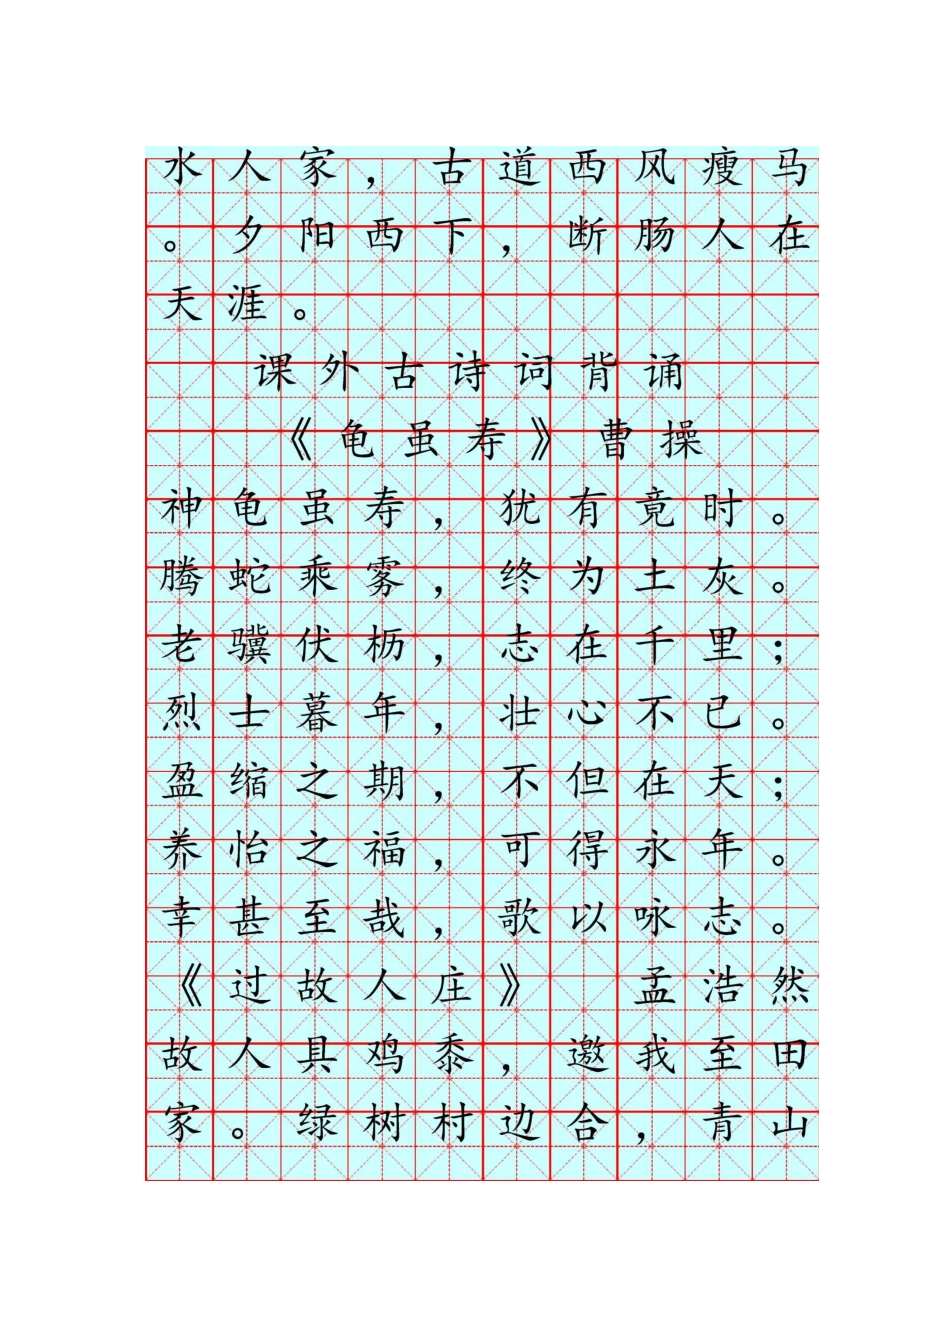 水人家，古道西风瘦马
。夕阳西下，断肠人在
天涯。
课外古诗词背诵
《龟虽寿》曹操
神龟虽寿，犹有竟时。
腾蛇乘雾，终为土灰。
老骥伏枥，志在千里；
烈士暮年，壮心不已。
盈缩之期，不但在天；
养怡之福，可得永年。
幸甚至哉，歌以咏志。
《过故人庄》 孟浩然
故人具鸡黍，邀我至田
家。绿树村边合，青山